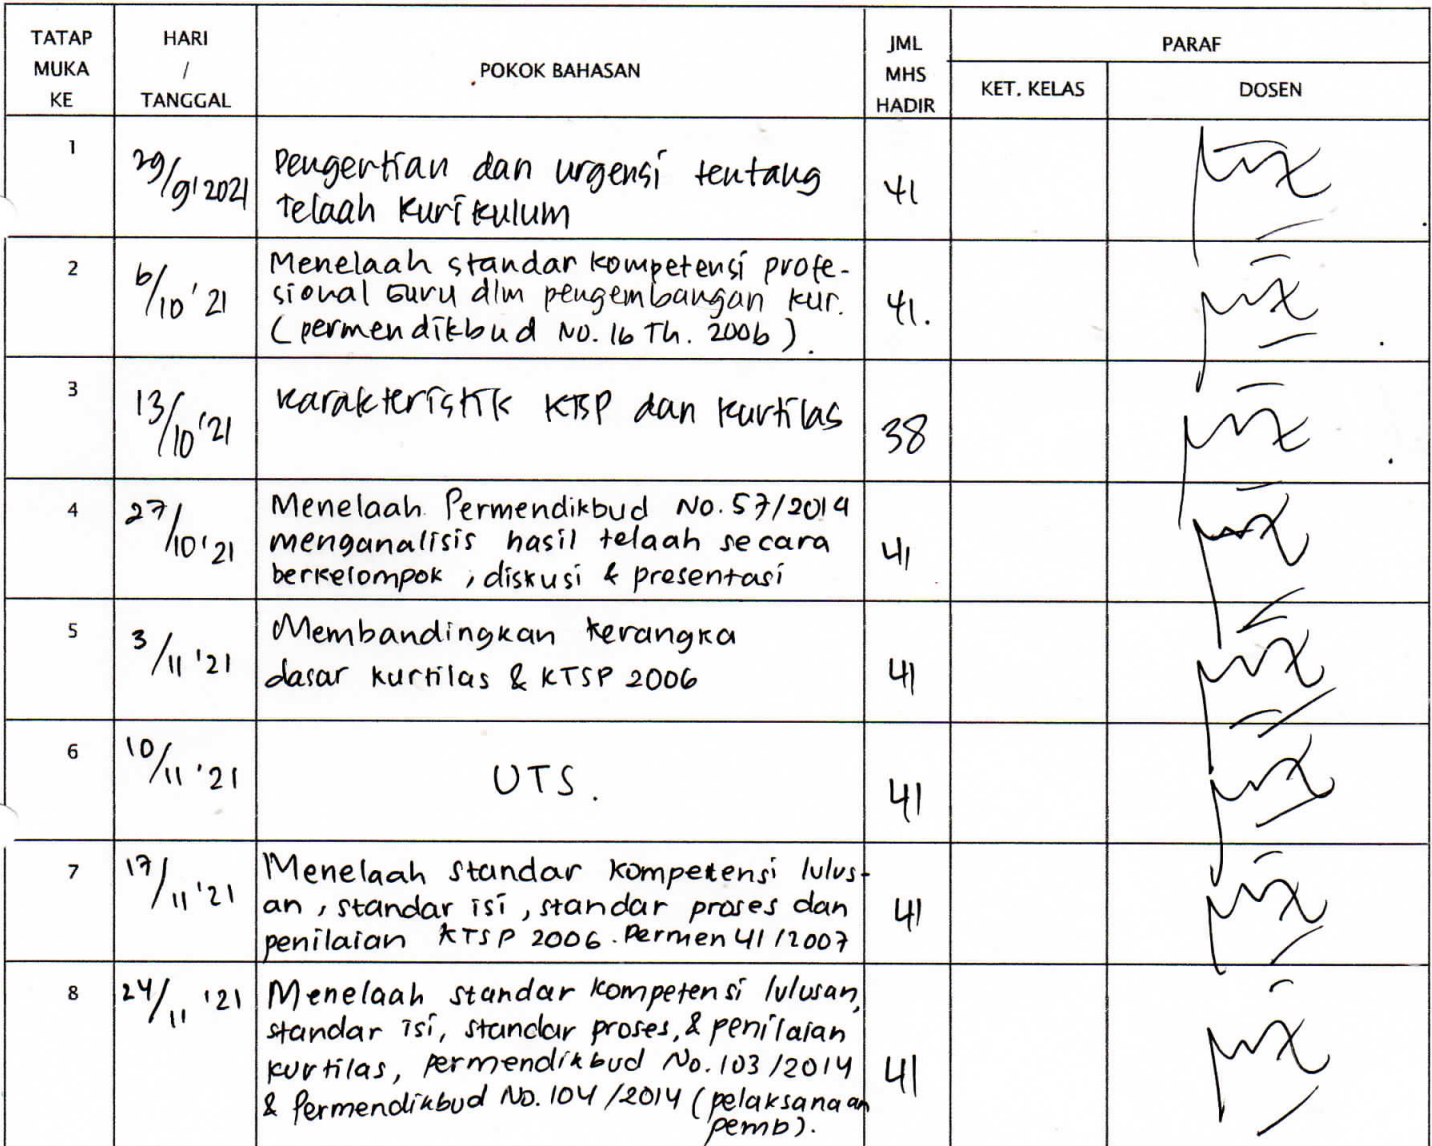 TATAP MUKA KE
HARI / TANGGAL
POKOK BAHASAN
JML MHS HADIR
PARAF
KET. KELAS
DOSEN
1
29/9'2021
Pengertian dan urgensi tentang
telaah kurikulum
41
2
6/10'21
Menelaah standar kompetensi profe-
sional Guru dlm pengembangan kur.
(permendikbud No. 16 Th. 2006).
41.
3
13/10'21
karakteristik KTSP dan kurtilas
38
4
27/10'21
Menelaah Permendikbud No. 57/2014
menganalisis hasil telaah secara
berkelompok, diskusi & presentasi
41
5
3/11'21
Membandingkan kerangka
dasar kurtilas & KTSP 2006
41
6
10/11'21
UTS.
41
7
17/11'21
Menelaah standar kompetensi lulus-
an, standar isi, standar proses dan
penilaian KTSP 2006. Permen 41/2007
41
8
24/11'21
Menelaah standar kompetensi lulusan,
standar isi, standar proses, & penilaian
kurtilas, permendikbud No. 103/2014
& Permendikbud No. 104/2014 (pelaksanaan
pemb).
41